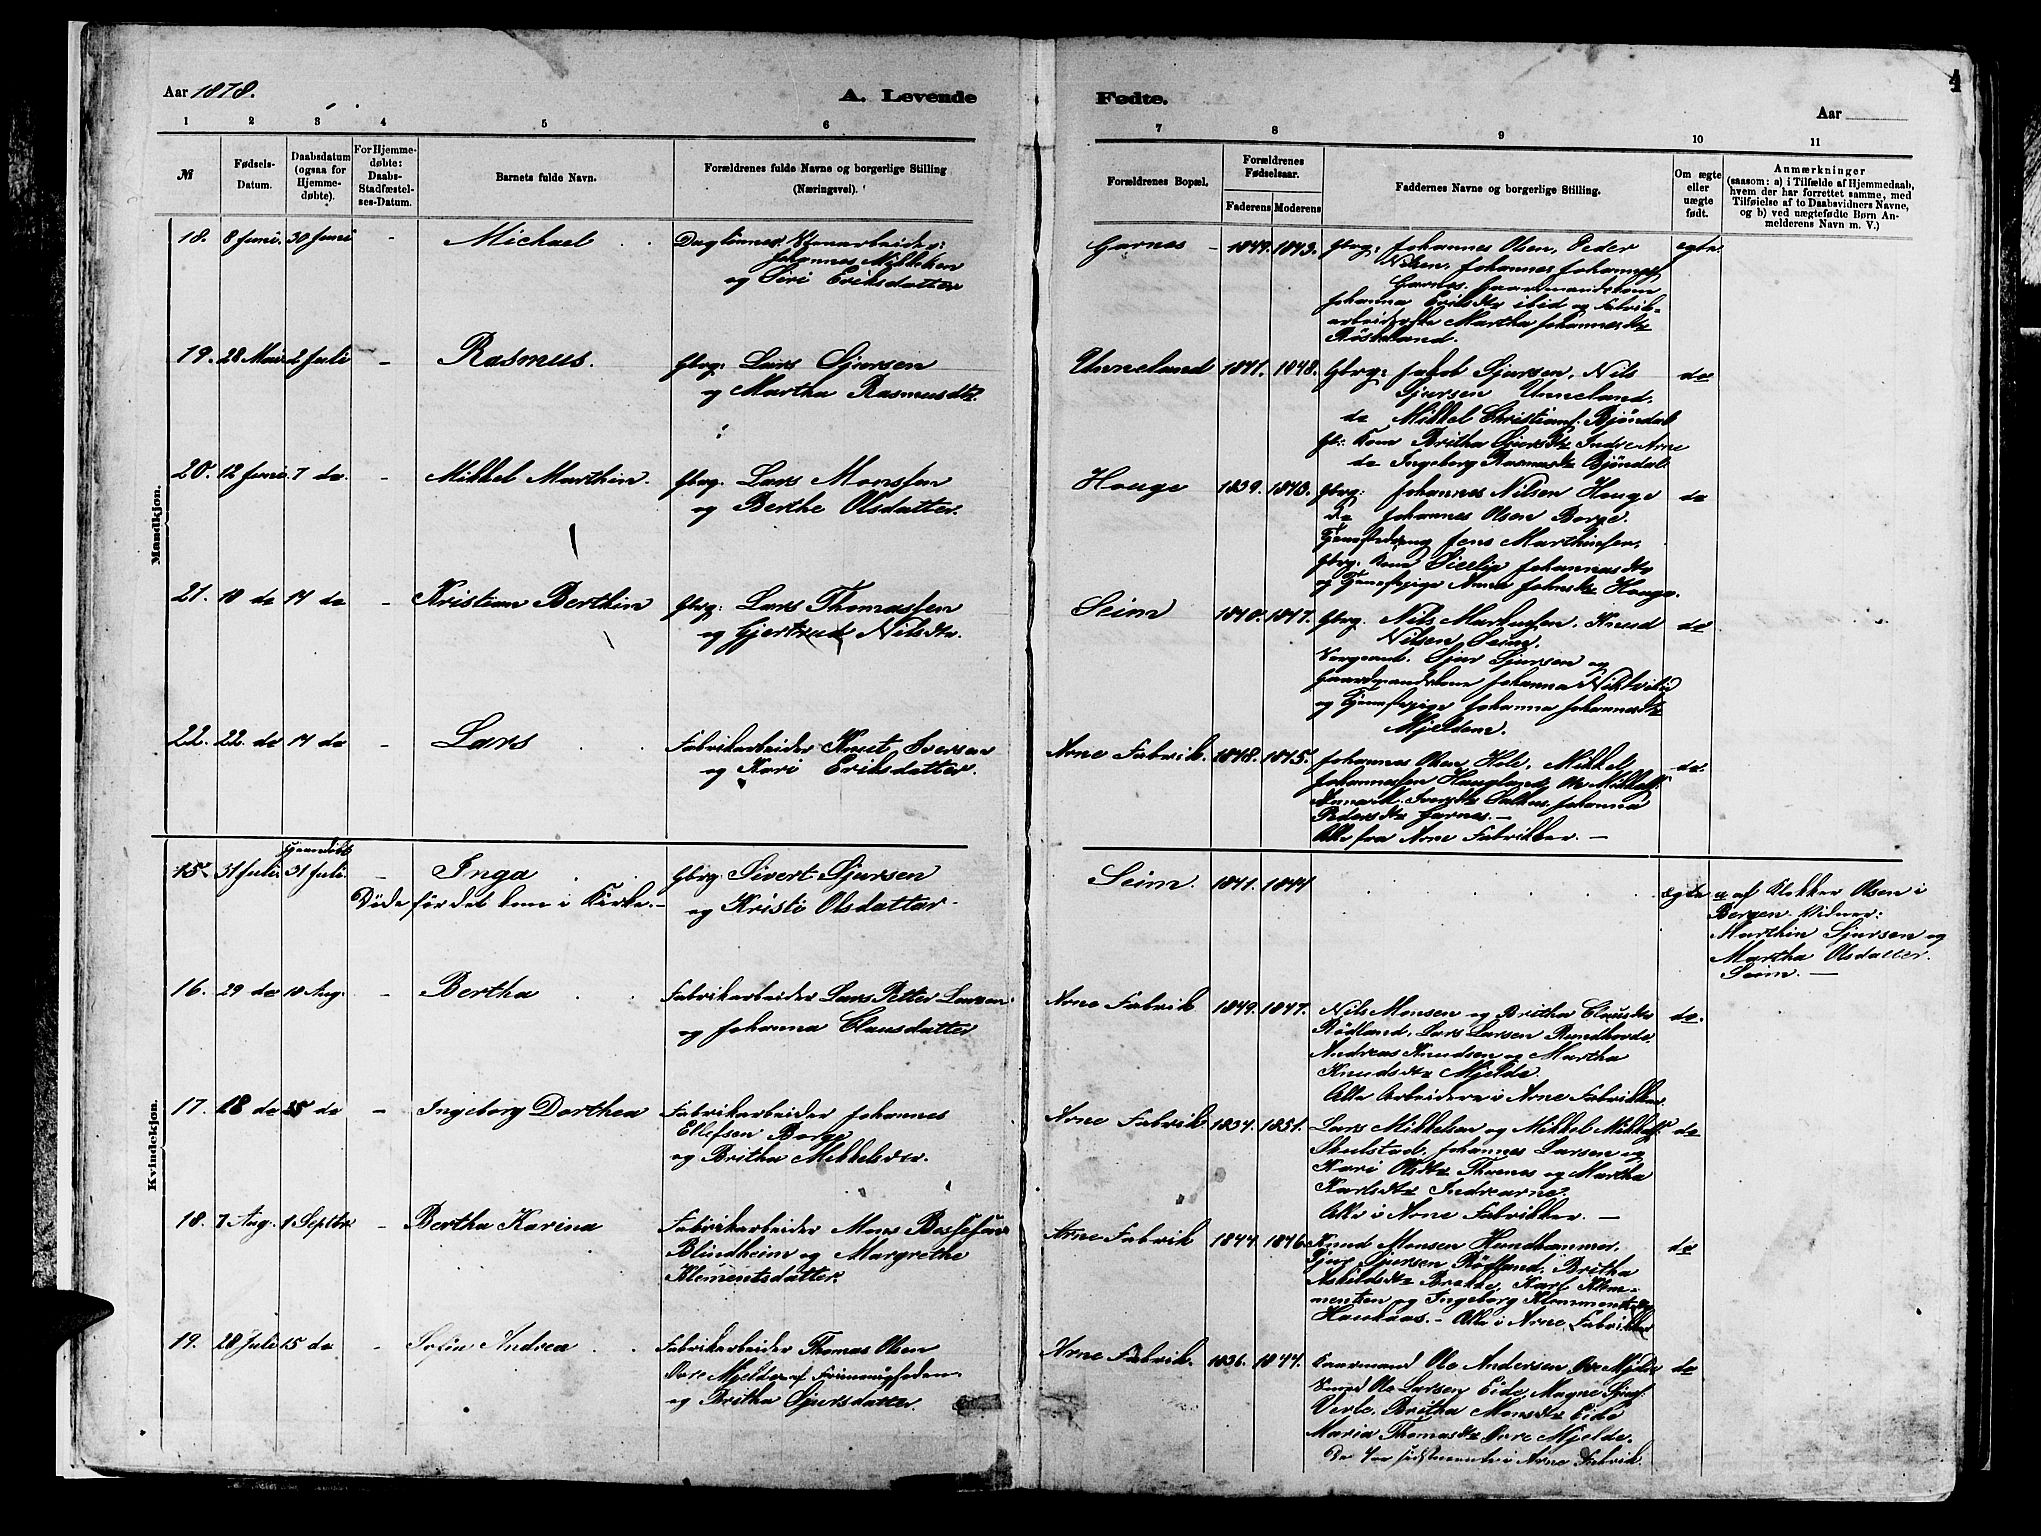 Aar 1878.
A. Levende
Fødte.
Aar
4
1 2 3 4 5 6
7 8 9 10 11
№
Fødsels-Datum.
Daabsdatum (ogsaa for Hjemmedøbte).
For Hjemmedøbte: Daabs-Stadfæstelses-Datum.
Barnets fulde Navn.
Forældrenes fulde Navne og borgerlige Stilling (Næringsvei).
Forældrenes Bopæl.
Forældrenes Fødselsaar.
Faderens Moderens
Faddernes Navne og borgerlige Stilling.
Om ægte eller uægte født.
Anmærkninger
(saasom: a) i Tilfælde af Hjemmedaab, hvem der har forrettet samme, med Tilføielse af to Daabsvidners Navne, og b) ved uægtefødte Børn Anmelderens Navn m. V.)
Mandkjøn.
18. 8 Juni. 30 Juni - Michael
Johannes Mikkelsen
og Siri Eriksdatter
Garnes - 1849. 1843. Gbrg: Johannes Olsen, Peder
Nilsen, Johannes Johannes.
Garnes. Gaardmandskone
Johanna Eriksdtr ibid og Fabrik-
Martha Johannesdtr
19. 28 Mai 2 Juli - Rasmus. Gbrg: Lars Sjursen
og Martha Rasmusdtr.
Unneland 1841. 1848. Gbrg: Jakob Sjursen, Nils
Sjursen Unneland,
do Mikkel Christians. Bjøndal
Gb: Kone Britha Sjursdtr Indre Arne
do Ingeborg Rasmusdtr Bjøndal.
do
20. 12 Juni 7 do - Mikkel Marthin. Gbrg. Lars Monssen
og Berthe Olsdatter.
Houge 1839. 1843. Gbrg: Johannes Nilsen Houge
do Johannes Olsen Borge.
Jens Marthinsen,
Gbrg. Kone Johannesdtr
og Tjenestepige Anna Houge.
do
21. 10 do 14 do - Kristian Berthin Gbrg: Lars Thomassen
og Gjertrud Nilsdtr.
Seim 1840. 1847. Gbrg. Nils Markussen, Knud
Nilsen Seim.
Sergeant. Sjur Sjursen og
Gaardmandskone Johanna
og Tjenestepige Johanna Johannesdtr
Mjeldem.
do
22. 22 do 14 do - Lars Fabrikarbeider Knut Iversen
og Kari Eriksdatter.
Arne Fabrik. 1848. 1845. Johannes Olsen Mikkel
Johannessen Haugland, Ole Mikkels.
Johanna
Pedersdtr Garnes. -
Alle fra Arne Fabrikker. -
do.
Kvindekjøn.
15. 31 Juli 31 Juli. - Inga Gbrg: Sivert Sjursen
Døde før det kom i Kirke. - og Kristi Olsdatter
Seim. 1841. 1844 ægte a af Klokker Olsen i
Bergen. Vidner:
Marthin Sjursen og
Martha Olsdatter
Seim. -
16. 29 do 18 Aug. - Bertha Fabrikarbeider Lars Petter Larsen
og Johanna Clausdatter
Arne Fabrik 1849. 1847. Nils Monsen og Britha Clausdtr
Rødland, Lars Larsen
Andreas Knudsen og Martha
Knudsdtr Mjelde.
Alle Arbeidere i Arne Fabrikker.
do.
17. 28 do 25 do - Ingeborg Dorthea Fabrikarbeider Johannes
Ellefsen Borge
og Britha Mikkelsdtr.
Arne Fabrik 1834. 1851. Lars Mikkelsen og Mikkel Mikkels.
Skulstad, Johannes Larsen og
Kari Olsdtr og Martha
Karlsdtr Indrearne.
Alle i Arne Fabrikker. -
do
18. 7 Aug. 1 Septbr - Bertha Karina Fabrikarbeider Mons Bessesen
Blindheim og Margrethe
Klementsdatter
Arne Fabrik 1844. 1846. Knud Monsen Hundhammer,
Sjur Sjursen Rødland, Britha
Askildsdtr Brekke, Karl Kle-
mentsen og Ingeborg Klementsdtr
Haukaas. - Alle i Arne Fabrikker
do
19. 28 Juli 15 do - Sofie Andrea Fabrikarbeider Thomas Olsen
og Britha Sjursdatter
Arne Fabrik. 1836. 1844. Gaarmand Ole Andersen Øvre Mjelde
Smed Ole Larsen Eide, Magne Sjurs.
Verle, Britha Monsdtr Eide
Maria Thomasdtr Øvre Mjelde.
De 4 sidstnævnte i Arne Fabrik.
do